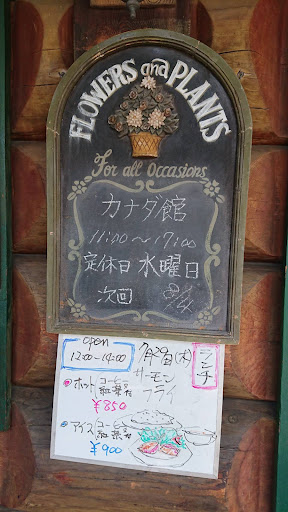 FLOWERS and PLANTS
For all Occasions
カナダ館
11:00〜17:00
定休日 水曜日
次回 8/4
open
12:00-14:00
7/29日(木)
ランチ
サーモン
フライ
ホット(コーヒー
紅茶付
¥850
アイス(コーヒー
紅茶付
¥900